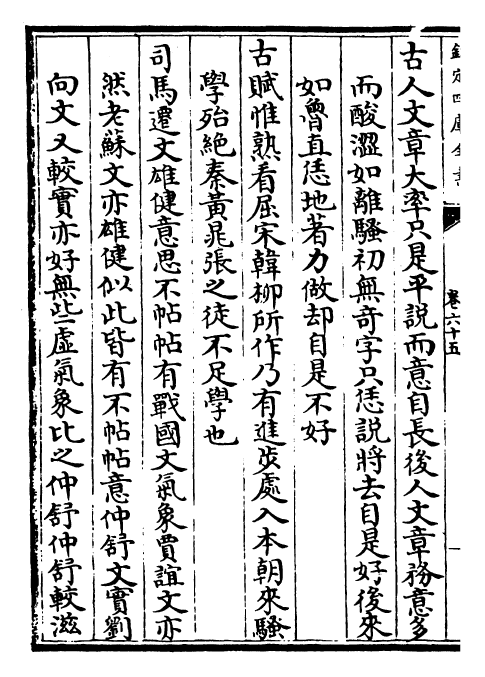 欽定四庫全書
卷六十五
一
古人文章大率只是平說而意自長後人文章務意多
而酸澀如離騷初無奇字只恁說將去自是好後來
如魯直恁地著力做却自是不好
古賦惟熟看屈宋韓柳所作乃有進步處入本朝來騷
學殆絶秦黃晁張之徒不足學也
司馬遷文雄健意思不帖帖有戰國文氣象賈誼文亦
然老蘇文亦雄健似此皆有不帖帖意仲舒文實劉
向文又較實亦好無些虛氣象比之仲舒仲舒較滋